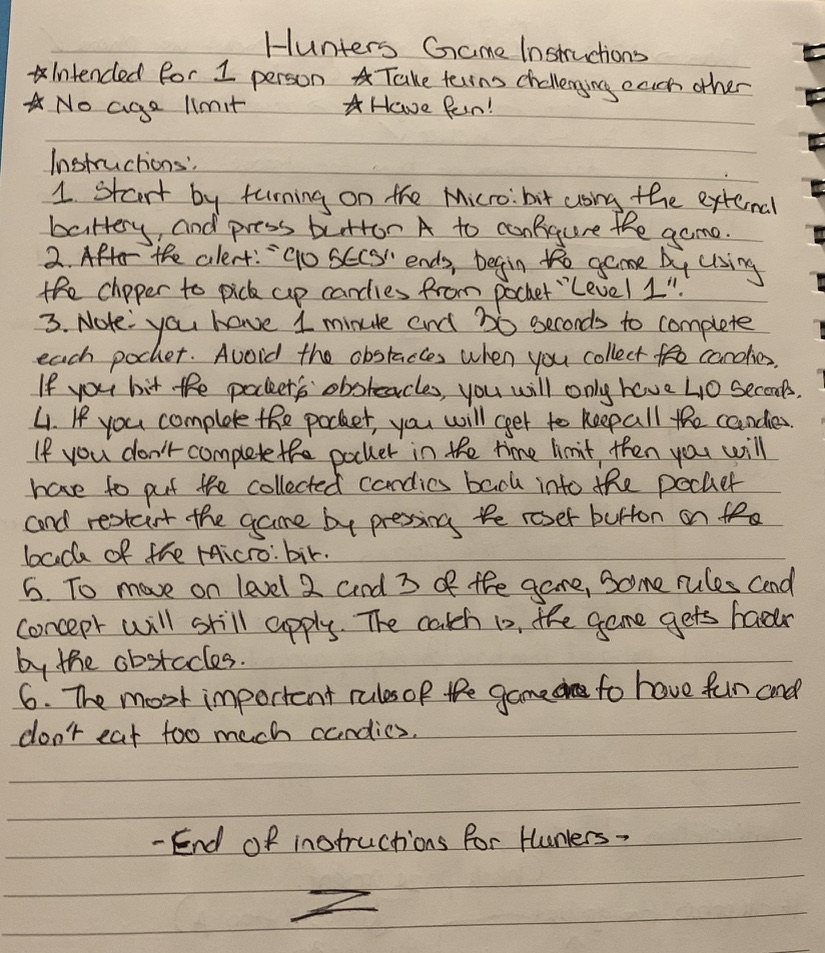 Hunters Game Instructions
☆Intended for 1 person ☆Take turns challenging each other
☆ No age limit ☆Have fun!
Instructions:
1. Start by turning on the Micro:bit using the external
battery, and press button A to configure the game.
2. After the alert: "90 SECS" ends, begin the game by using
the clipper to pick up candies from pocket "Level 1".
3. Note: you have 1 minute and 30 seconds to complete
each pocket. Avoid the obstacles when you collect the candies.
If you hit the pocket's obsteacles, you will only have 40 seconds.
4. If you complete the pocket, you will get to keep all the candies.
If you don't complete the pocket in the time limit, then you will
have to put the collected candies back into the pocket
and restart the game by pressing the reset button on the
back of the Micro:bit.
5. To move on level 2 and 3 of the game, Some rules and
concept will still apply. The catch is, the game gets harder
by the obstacles.
6. The most important rules of the game are to have fun and
don't eat too much candies.
-End of instructions for Hunters-